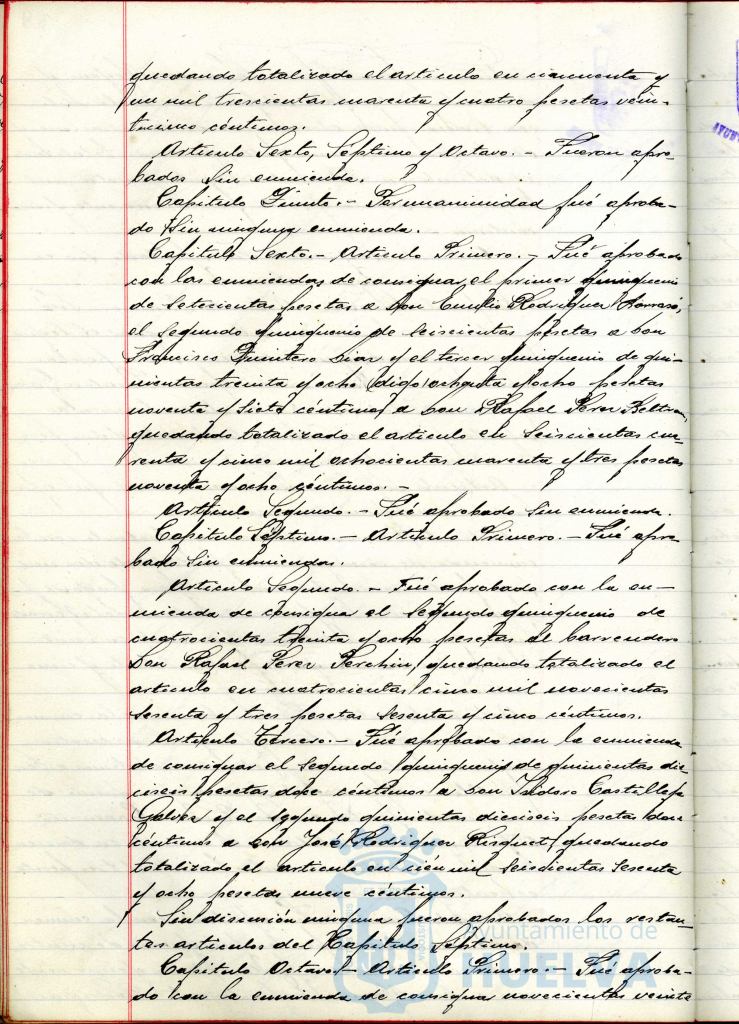 quedando totalizado el articulo en cincuenta y
un mil trescientas cuarenta y cuatro pesetas vein-
ticinco céntimos.
Articulo Sexto, Séptimo y Octavo. - Fueron apro-
bados sin enmienda.
Capitulo Quinto. - Permanmidad fué aproba-
do sin ninguna enmienda.
Capitulo Sexto. - Articulo Primero. - Fué aprobado
con las enmiendas de consignar el primer quinquenio
de setecientas pesetas a Don Emilio Rodriguez
el segundo quinquenio de seiscientas pesetas a Don
Francisco Quintero Diaz y el tercer quinquenio de qui-
nientas treinta y ocho digo ochenta y ocho pesetas
noventa y siete céntimos a Don Rafael Perez Beltran,
quedando totalizado el articulo en seiscientas cua-
renta y cinco mil ochocientas cuarenta y tres pesetas
noventa y ocho céntimos. -
Articulo Segundo. - Fué aprobado sin enmienda.
Capitulo Septimo. - Articulo Primero. - Fué apro-
bado sin enmiendas.
Articulo Segundo. - Fué aprobado con la en-
mienda de consigna el segundo quinquenio de
cuatrocientas treinta y ocho pesetas al barrendero
Don Rafael Perez quedando totalizado el
articulo en cuatrocientas cinco mil novecientas
sesenta y tres pesetas sesenta y cinco céntimos.
Articulo Tercero. - Fué aprobado con la enmienda
de consignar el segundo quinquenio de quinientas die-
ciseis pesetas doce céntimos a Don Isidoro Castilleja
Galvez y el segundo quinientas dieciseis pesetas doce
céntimos a Don José Rodriguez Risquet quedando
totalizado el articulo en cien mil seiscientas sesenta
y ocho pesetas nueve céntimos.
Sin discusión ninguna fueron aprobados los restan-
tes articulos del Capitulo Séptimo.
Capitulo Octavo - Articulo Primero. - Fué aproba-
do con la enmienda de consignar novecientas veinte
Ayuntamiento de
HUELVA